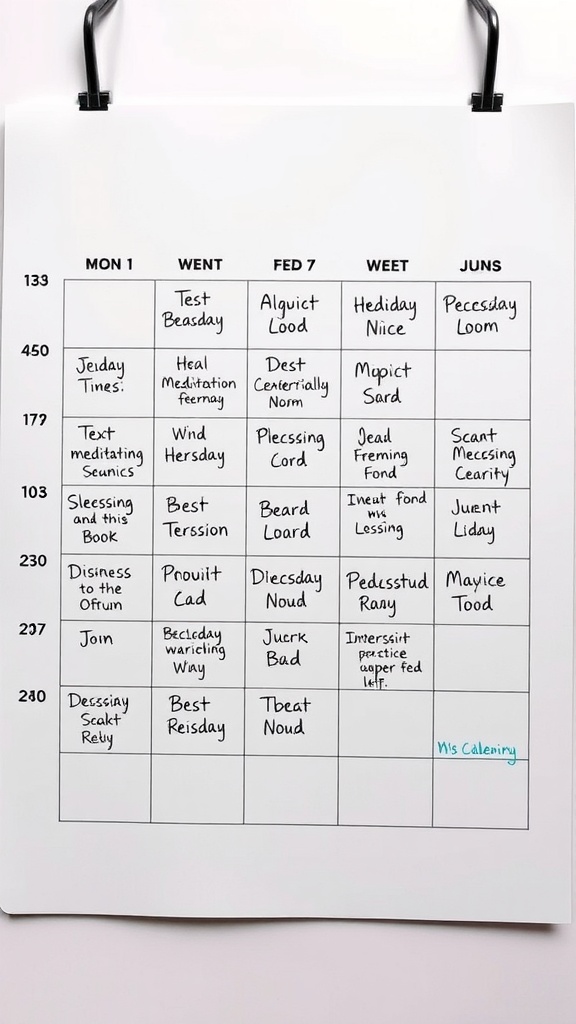 MON 1 WENT FED 7 WEET JUNS
133
Test
Beasday
Alguict
Lood
Hediday
Niice
Pecesday
Loom
450
Jeiday
Tines:
Heal
Meditation
feernay
Dest
Centerfially
Norm
Mopict
Sard
177
Text
meditating
Seunics
Wind
Hersday
Plecssing
Cord
Jead
Freming
Fond
Scant
Mecssing
Cearity
103
Slecssing
and this
Book
Best
Terssion
Beard
Loard
Ineut fond
Lossing
Juent
Liday
230
Disiness
to the
Ofrum
Prouiit
Cad
Diecsday
Noud
Pedesstud
Rany
Mayice
Tood
297
Join
Beclcday
wariciing
Way
Jucrk
Bad
practice
aaper fed
240
Decssiay
Scakt
Reby
Best
Reisday
Tbeat
Noud
Wis Caleniry